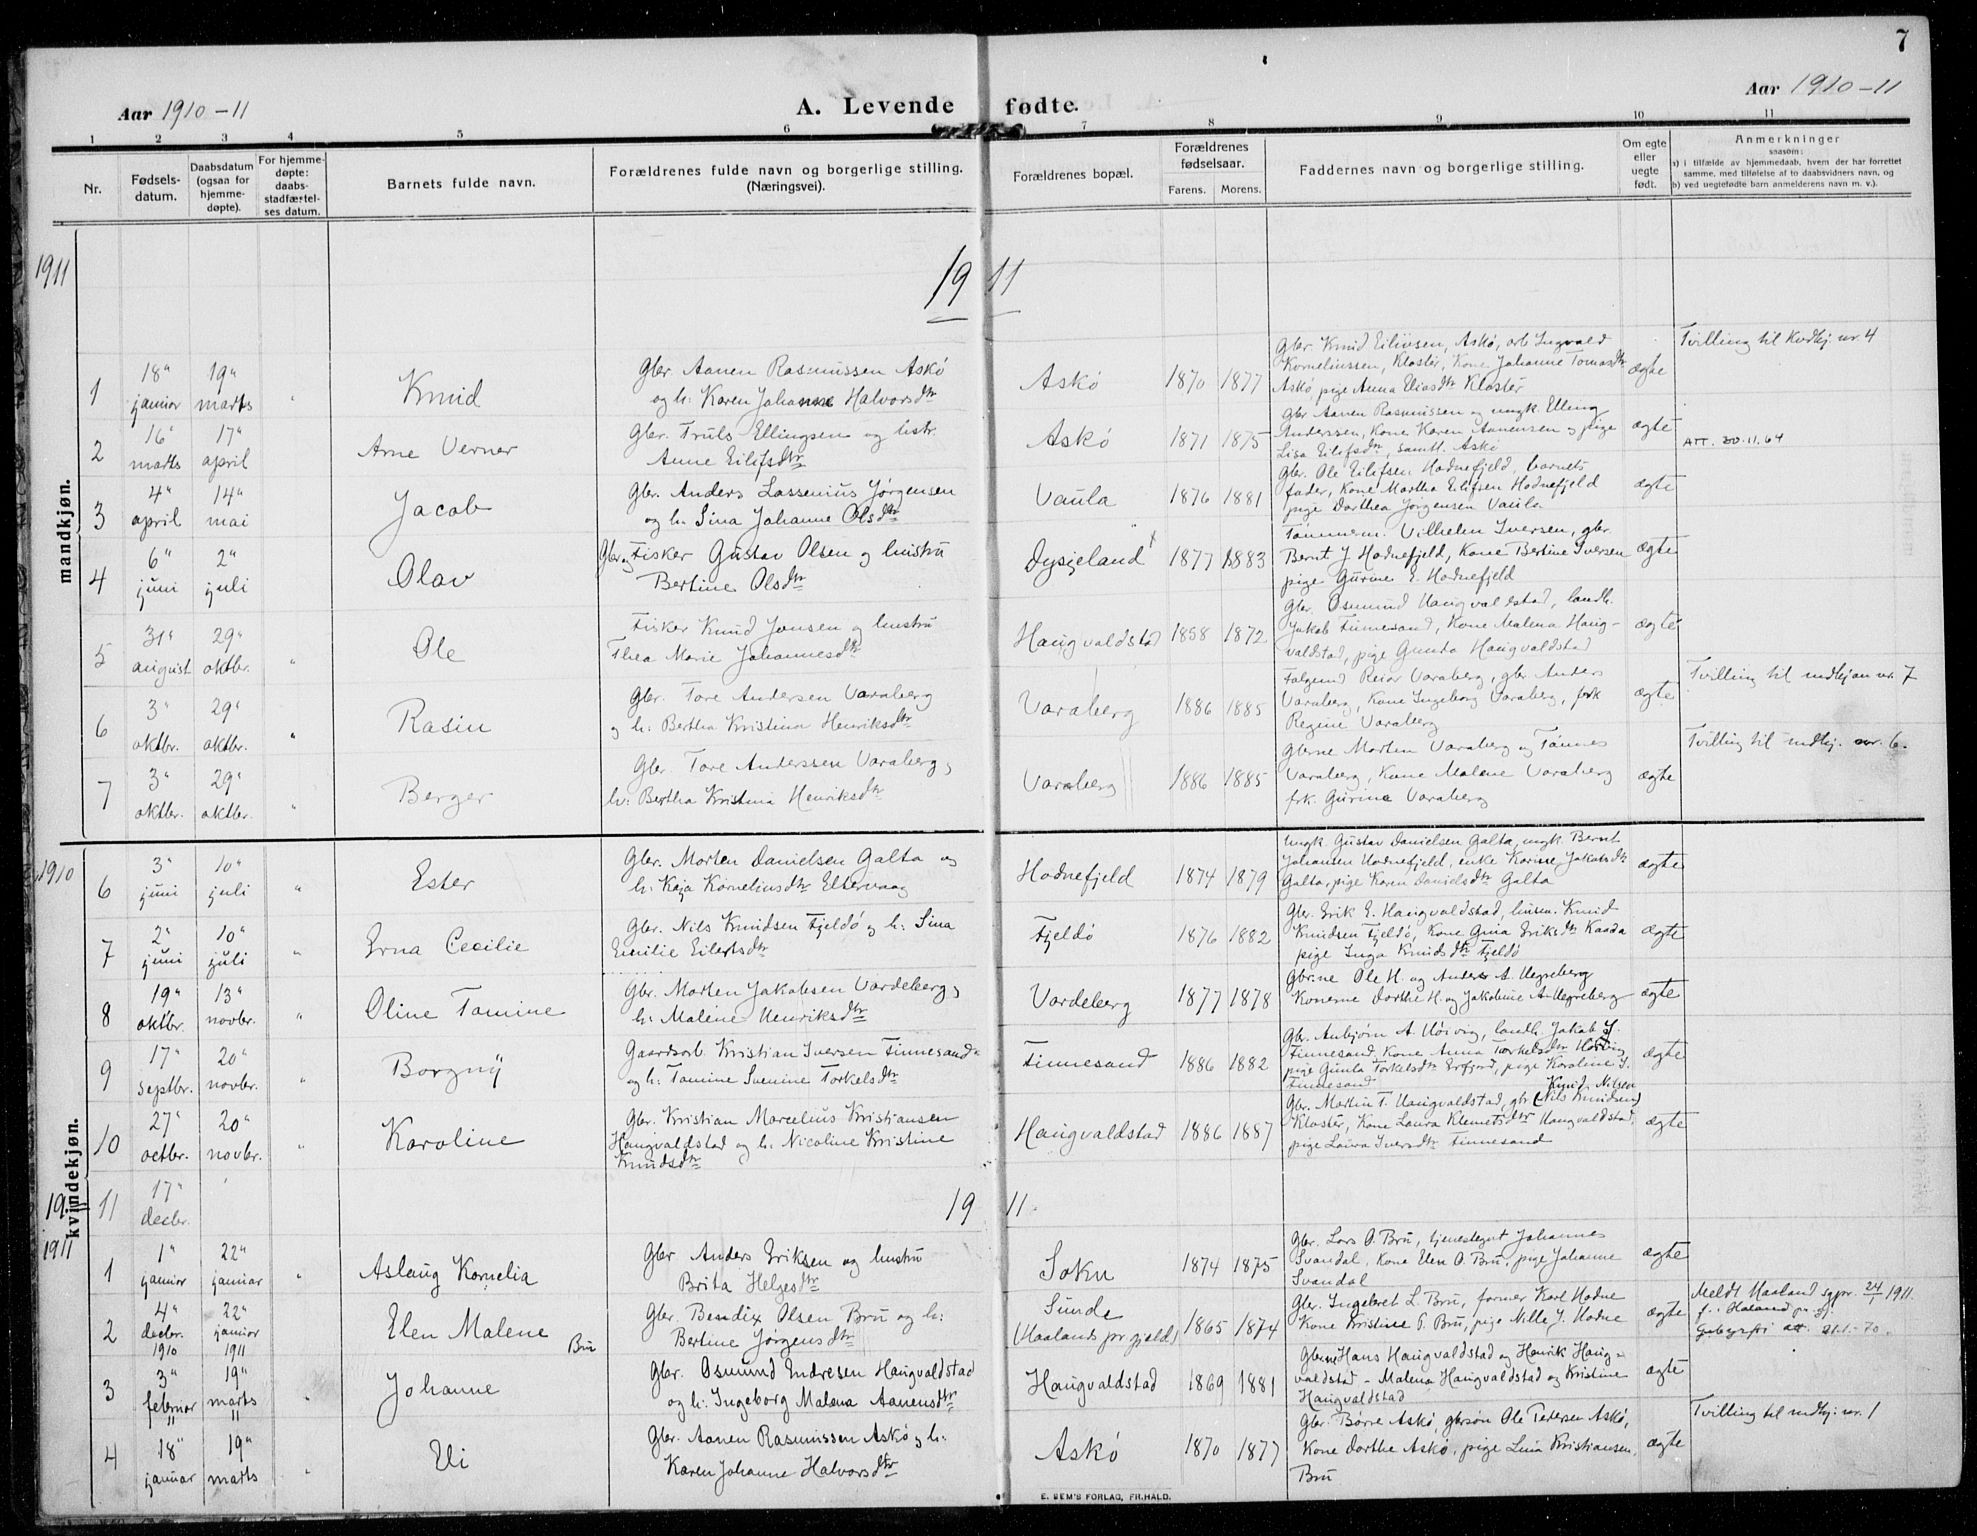 7
Aar 1910-11
A. Levende fødte.
Aar 1910-11
1 2 3 4 5 6 7 8 9 10 11
Nr.
Fødsels-
datum.
Daabsdatum
(ogsaa for
hjemme-
døpte).
For hjemme-
døpte:
daabs-
stadfærtel-
ses datum.
Barnets fulde navn.
Forældrenes fulde navn og borgerlige stilling.
(Næringsvei).
Forældrenes bopæl.
Forældrenes
fødselsaar.
Farens. Morens.
Faddernes navn og borgerlige stilling.
Om egte
eller
uegte
født.
Anmerkninger
saasom:
a) i tilfælde av hjemmedaab, hvem der har forrettet
samme, med tilføielse af to daabsvidners navn, og
b) ved uegtefødte barn anmelderens navn m. v.).
1911
19 11
mandkjøn.
1
18" januar
19" marts
Knud
Gbr Aanen Rasmussen Askö
og h: Karen Johanne Halvorsdtr
Askö
1870 1877
Gbr. Knud Eilivsen, Askö, arb Ingvald
Korneliussen, Kloster, Kone Johanne Tomasdtr
Askö pige Anna Eliasdtr Kloster
ægte
Tvilling til Kvdkj. nr. 4
2
16" marts
17" april
Arne Verner
Gbr. Truls Ellingsen og hstr.
Anne Eilifsdtr
Askö
1871 1875
Gbr Aanen Rasmussen og ungk. Elling
Anderssen, Kone Karen Aanensen og pige
Lisa Eilifsdtr, samtl. Askö
ægte
ATT. 30.11.64
3
4" april
14" mai
Jacob
Gbr. Anders Lassenius Jörgensen
og h. Sina Johanne Olsdtr
Vaula
1876 1881
Gbr. Ole Eilifsen Hodnefjeld, barnets
fader, Kone Martha Eilifsen Hodnefjeld
pige Dorthea Jörgensen Vaula
ægte
4
6" juni
2" juli
Olav
Gbr og Fisker Gustav Olsen og hustru
Bertine Olsdtr
Dysjeland
1877 1883
Tömmerm. Vilhelm Iversen, gbr.
Bernt J Hodnefjeld, Kone Bertine Iversen
pige Gurine E. Hodnefjeld
ægte
5
31" august
29" oktbr.
Ole
Fisker Knud Jonsen og hustru
Thea Marie Johannesdtr
Haugvaldstad
1858 1872
Gbr. Osmund Haugvaldstad, landh.
Jakob Finnesand, Kone Malena Haug-
valdstad, pige Gunda Haugvaldstad
ægte
6
3" oktbr.
29" oktbr.
Rasin
Gbr. Tore Andersen Varaberg
og h: Bertha Kristina Henriksdtr
Varaberg
1886 1885
Folgemd Reiar Varaberg, gbr Anders
Varaberg, Kone Ingeborg Varaberg, frk
Regine Varaberg
ægte
Tvilling til mdkjøn nr. 7
7
3" oktbr.
29" oktbr.
Berger
Gbr. Tore Anderssen Varaberg,
h: Bertha Kristina Henriksdtr
Varaberg
1886 1885
Gbrne Morten Varaberg og Tönnes
Varaberg, Kone Malene Varaberg
frk. Gurine Varaberg
ægte
Tvilling til mdkj. nr. 6.
1910
kvindekjøn.
6
3" juni
10" juli
Ester
Gbr. Morten Danielsen Galta og
h: Kaja Korneliusdtr Eltervaag
Hodnefjeld
1874 1879
Ungk. Gustav Danielsen Galta, ungk. Bernt
Johansen Hodnefjeld, enke Karisse Jakobsdtr
Galta, pige Karen Danielsdtr Galta
ægte
7
2" juni
10" juli
Erna Cecilie
Gbr. Nils Knudsen Fjeldö og h: Sina
Emilie Eilertsdtr
Fjeldö
1876 1882
Gbr. Erik E. Haugvaldstad, husm. Knud
Knudsen Fjeldö, Kone Guia Eriksdtr Kaada
pige Inga Knudsdtr Fjeldö
ægte
8
19" oktbr.
13" novbr.
Oline Tamine
Gbr. Morten Jakobsen Vardeberg,
h: Malene Henriksdtr
Vardeberg
1877 1878
Gbr.ne Ole H. og Anders A. Hegreberg
Konerne Dorthe H. og Jakobine A. Hegreberg
ægte
9
17" septbr.
20" novbr.
Borgny
Gaardsarb. Kristian Iversen Finnesand
og h: Tamine Svenine Torkelsdtr
Finnesand
1886 1882
Gbr. Anbjörn A. Hörvig, landh. Jakob J.
Finnesand, Kone Anna Torkelsdtr Hörvig
pige Gunla Torkelsdtr Erfjord, pige Karoline J.
Finnesand
ægte
10
27" octbr.
20" novbr.
Karoline
Gbr. Kristian Marcelius Kristiansen
Haugvaldstad og h: Nicoline Kristine
Knudsdtr
Haugvaldstad
1886 1887
Knud Nilsen
Gbr. Martin T. Haugvaldstad, gbr (Nils Knudsen)
Kloster, Kone Laura Klemetsdtr Haugvaldstad,
pige Laura Iversdtr Finnesand
ægte
11
17" decbr.
19 11.
1911
1
1" januar
22" januar
Aslaug Kornelia
Gbr Anders Eriksen og hustru
Brita Helgesdtr
Sokn
1874 1875
Gbr. Lars O. Bru, tjenestegut Johannes
Svandal, Kone Elen O. Bru, pige Johanne
Svandal
ægte
2
4" decbr. 1910
22" januar 1911
Elen Malene
Bru
Gbr Bendix Olsen Bru og h:
Bertine Jörgensdtr
Sunde
(Haalands pr.gjeld)
1865 1874
Gbr. Ingebret L. Bru, former Karl Hodne
Kone Kristine P. Bru, pige Mille J. Hodne
ægte
Meldt Haaland sgpr. 24/1 1911.
3
3" februar
19" marts
Johanne
Gbr. Osmund Endresen Haugvaldstad
og h: Ingeborg Malena Aanensdtr
Haugvaldstad
1869 1881
Gbrne Hans Haugvaldstad og Henrik Haug-
valdstad - Malena Haugvaldstad og Kristine
Haugvaldstad
ægte
4
18" januar
19" marts
Eli
Gbr. Aanen Rasmussen Askö og h:
Karen Johanne Halvorsdtr
Askö
1870 1877
Gbr. Börre Askö, gbrsön Ole Pedersen Askö,
Kone Dorthe Askö, pige Lina Kristiansen
Bru
ægte
Tvilling til mdkj. nr. 1
E. SEM'S FORLAG, FR.HALD.